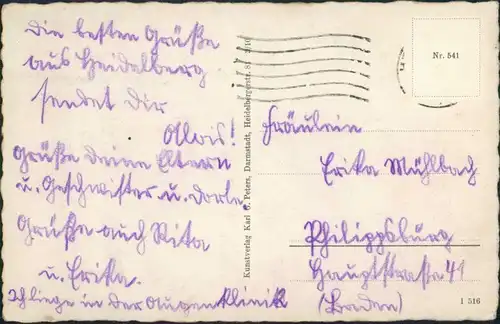 Die besten Grüße
aus Heidelberg
sendet dir
Alois!
Grüße deine Eltern
u. Geschwister u. Dorle.
Grüße auch Rita
u. Erika.
Ich liege in der Augenklinik
Kunstverlag Karl G. Peters, Darmstadt, Heidelbergerstr. 81 2/10
Nr. 541
Fräulein
Erika Mühlbach
Philippsburg
Hauptstraße 41
(Baden)
I 516